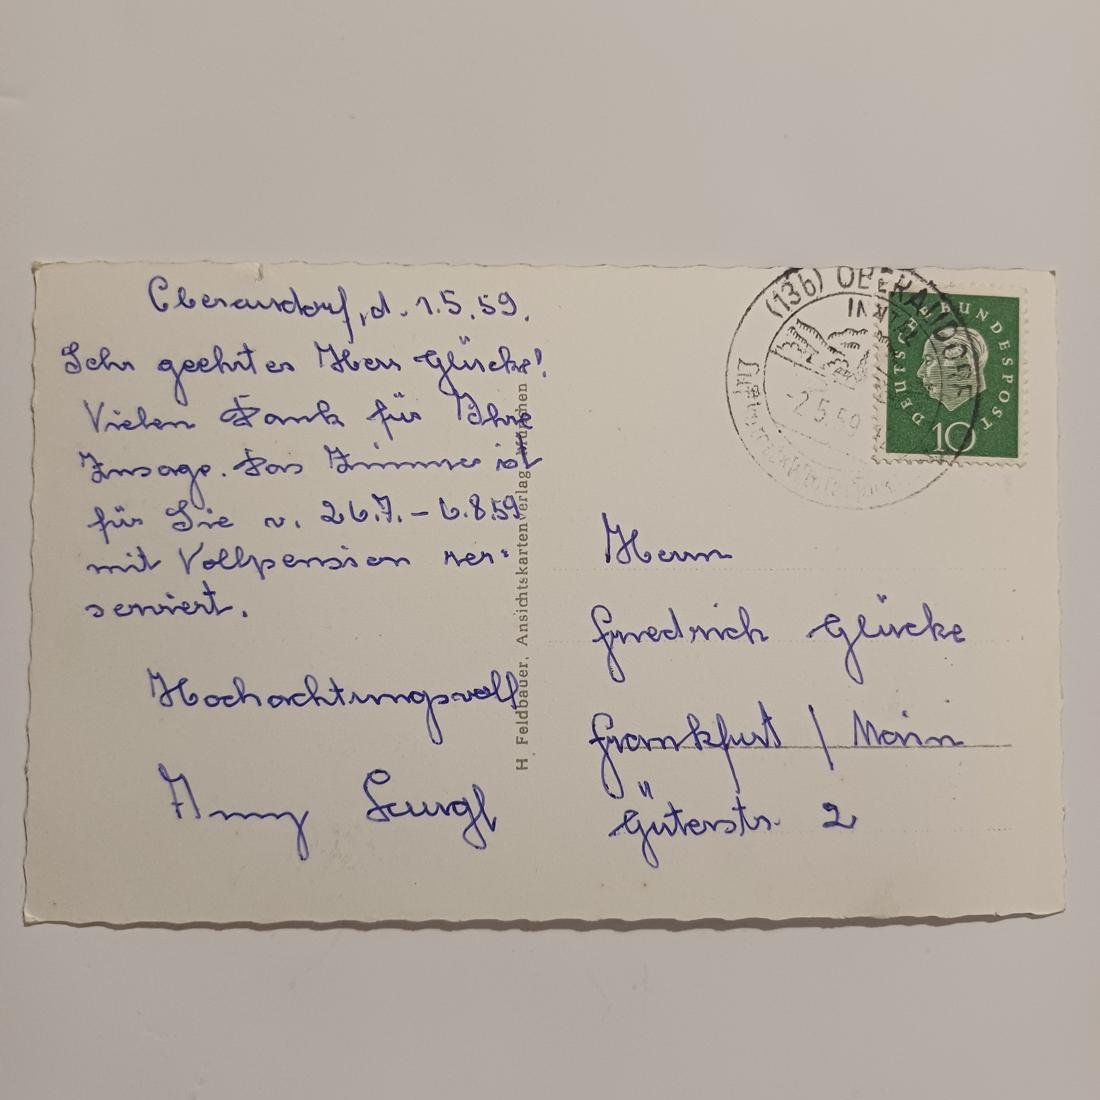 Oberaudorf, d. 1.5.59.
Sehr geehrter Herr Glücke!
Vielen Dank für Ihre
Zusage. Das Zimmer ist
für Sie v. 26.7. – 6.8.59
mit Vollpension re-
serviert.
Hochachtungsvoll
H. Feldbauer, Ansichtskartenverlag, München
(13b) OBERAUDORF
INN
-2.5.59
DEUTSCHE BUNDESPOST
10
Herrn
Friedrich Glücke
Frankfurt / Main
Güterstr. 2